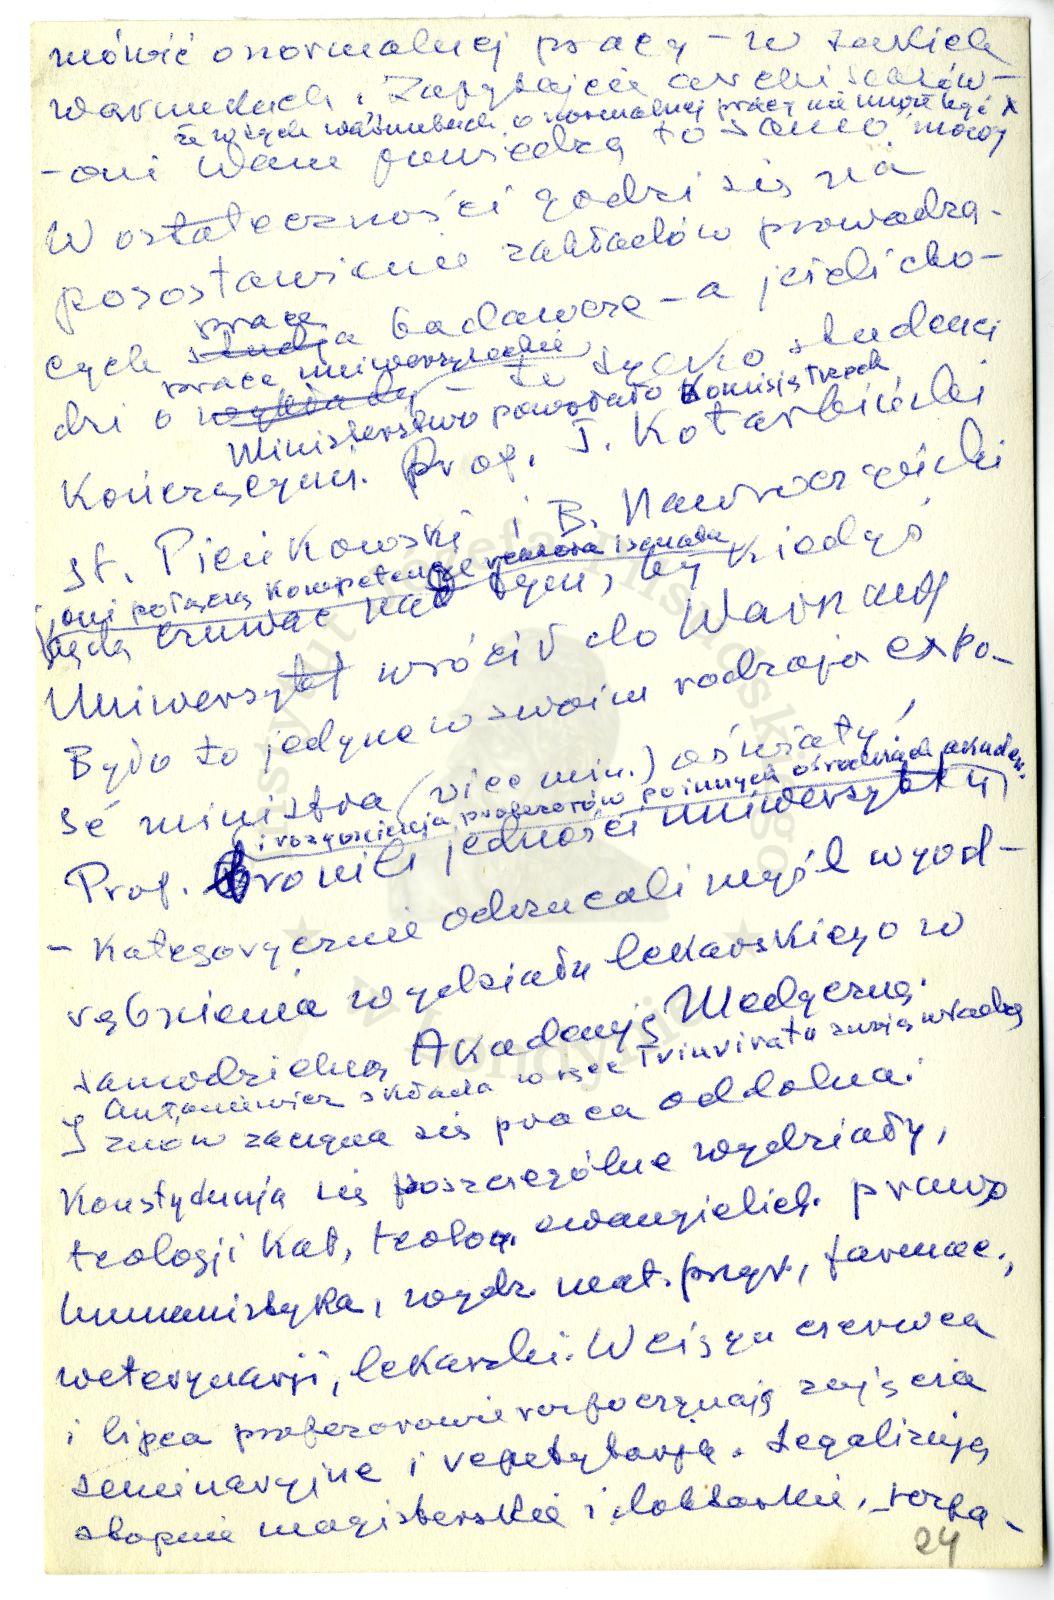 mówić o normalnej pracy – w takich
warunkach. Zapytajcie architektów –
że w tych warunkach o normalnej pracy nie może być mowy
– oni Wam powiedzą to samo
W ostateczności godzi się na
pozostawienie zakładów prowadzą-
cych studja badawcze – a jeśli cho-
pracę
pracę uniwersyteckie
dzi o wykłady – to tylko studenci
Ministerstwo powołało Komisję trzech
Kończącym. Prof. T. Kotarbiński
St. Pieńkowski i B. Nawroczyński
oni połączą kompetencje rektora i senatu
będą czuwać nad tym, by kiedyś
Uniwersytet wrócił do Warszawy
Było to jedyne w swoim rodzaju expo-
sé ministra (vice min.) oświaty!
i rozproszenia profesorów po innych ośrodkach akadem.
Prof. bronili jedności uniwersytetu
– Kategorycznie odrzucali myśl wyod-
rębnienia wydziału lekarskiego w
samodzielną Akademję Medyczną.
Antoniewicz składa w ręce Triumviratu swoją władzę
I znów zaczyna się praca oddolna:
Konstytuują się poszczególne wydziały,
teologji Kat, teolog. ewangielick. prawo
humanistyka, wydz. mat. przyr., farmac.,
weterynarji, lekarski. W ciągu czerwca
i lipca profesorowie rozpoczynają zajęcia
seminaryjne i repetytorja. Legalizują
stopnie magisterskie i doktorskie, rozpa-
24
Instytut Józefa Piłsudskiego
w Londynie